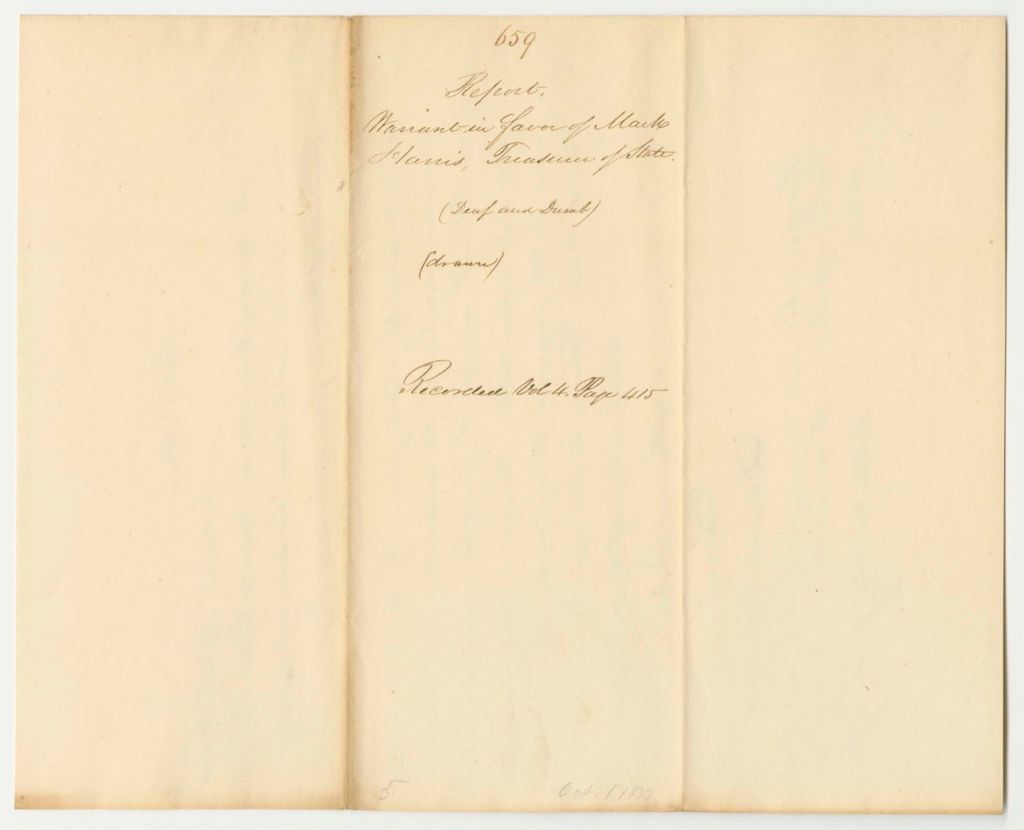 659
Report.
Warrant in favor of Mark
Harris, Treasurer of State.
(Deaf and Dumb)
(drawn)
Recorded Vol 4. Page 415
5
Oct. 1 1833